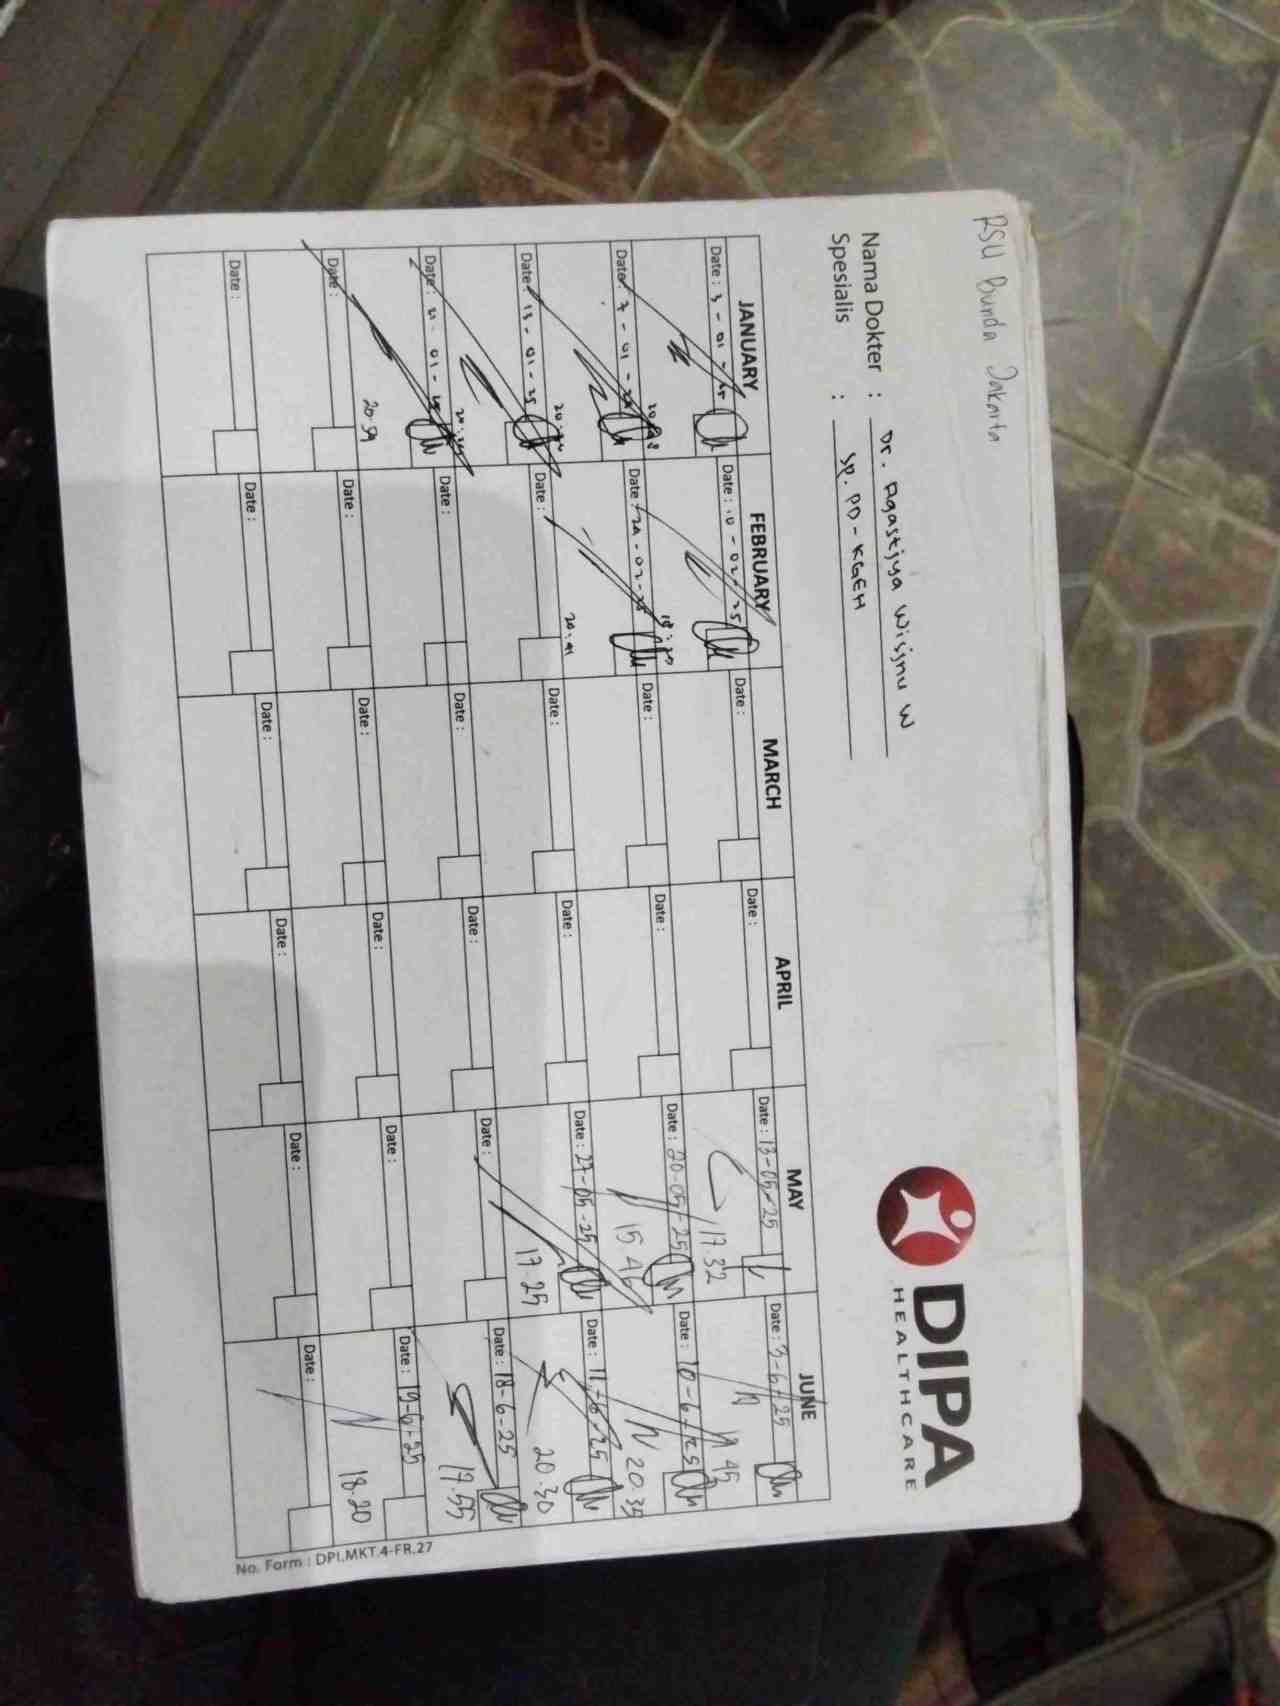 RSU Bunda Jakarta
DIPA
HEALTHCARE
Nama Dokter : Dr. Agastjya Wisjnu W
Spesialis : Sp. PD - KGEH
JANUARY FEBRUARY MARCH APRIL MAY JUNE
Date : 3 - 01 - 25 Date : 10 - 02 - 25 Date : Date : Date : 13-05-25 Date : 3-6-25
17.32
Date : 7 - 01 - Date : Date : Date : Date : 20-05-25 Date : 10-6-25
15 46 20.35
Date : 13 - 01 - 25 Date : Date : Date : Date : 27-05-25 Date : 11-6-25
20.41 17.25 20.30
Date : 21 - 01 - 25 Date : Date : Date : Date : Date : 18-6-25
20.59 17.55
Date : Date : Date : Date : Date : Date : 19-6-25
18.20
Date : Date : Date : Date : Date : Date :
No. Form : DPI.MKT.4-FR.27